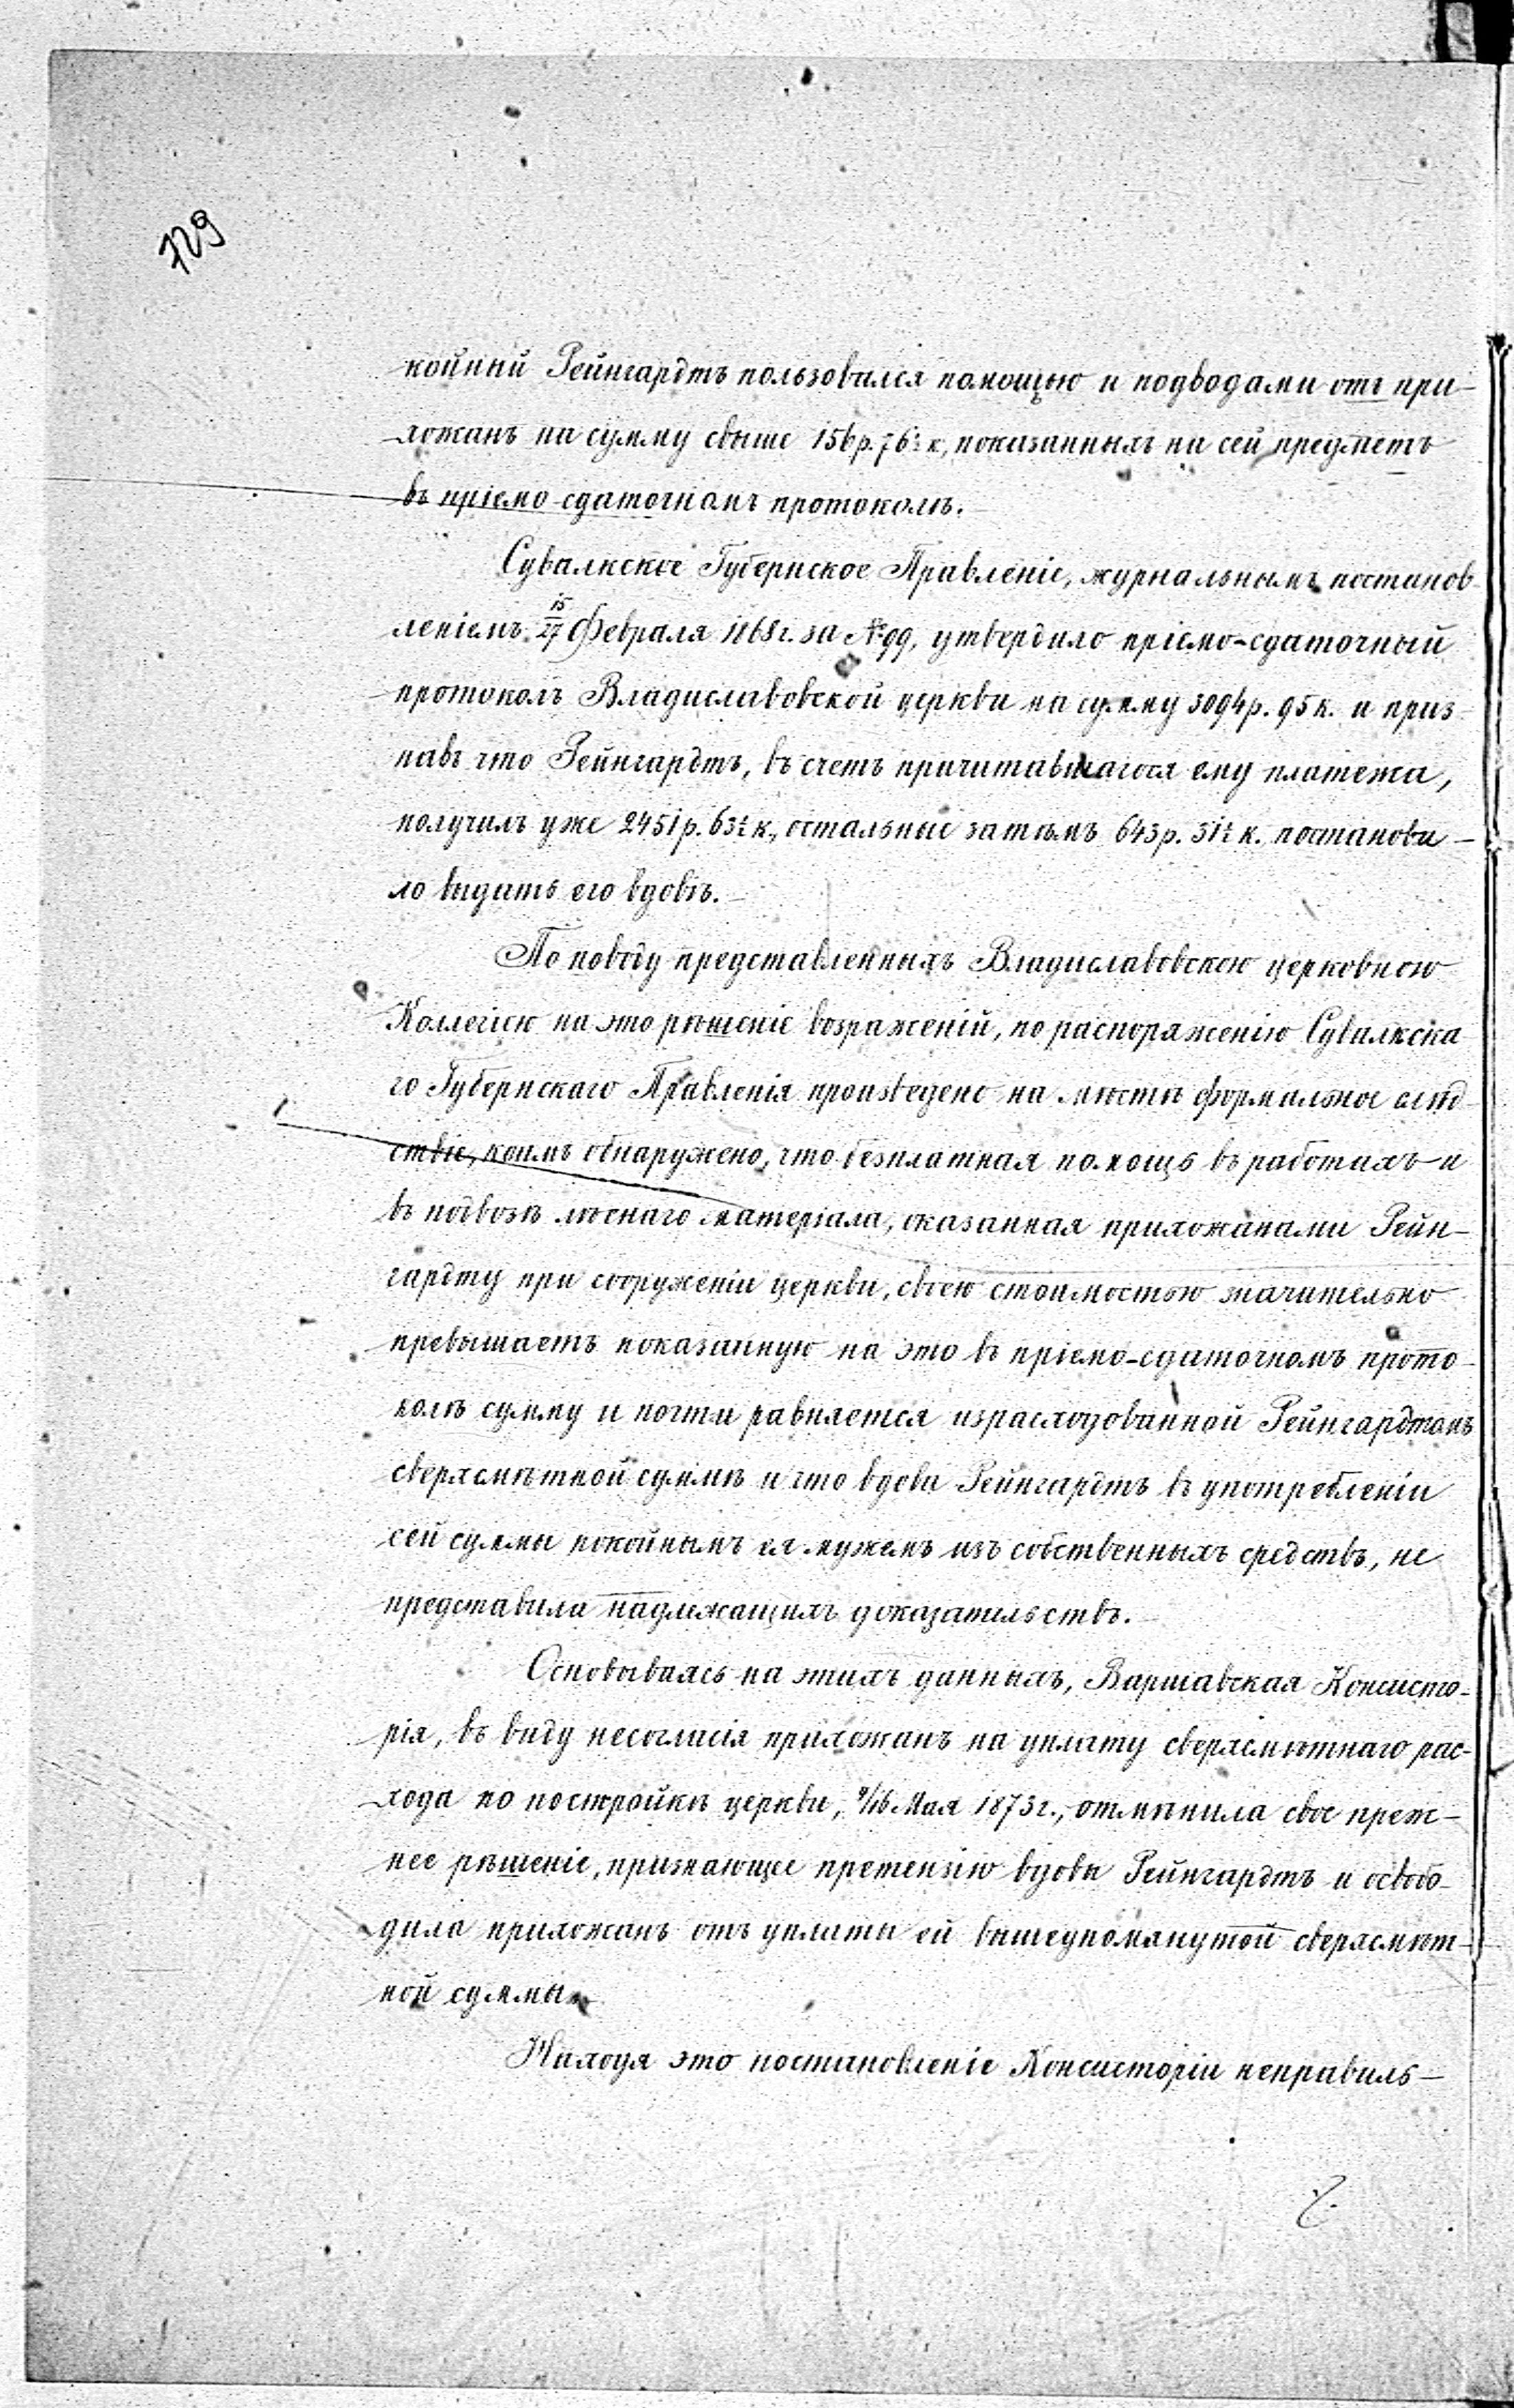 729
койный Рейнгардтъ пользовался помощью и подводами отъ при-
хожанъ на сумму свыше 156р. 76½ к., показанныхъ на сей предметъ
въ пріемо-сдаточномъ протоколѣ.
Сувалкское Губернское Правленіе, журнальнымъ постанов-
леніемъ 15/27 Февраля 1868г. за №99, утвердило пріемо-сдаточный
протоколъ Владиславовской церкви на сумму 3094р. 95к. и приз-
навъ что Рейнгардтъ, въ счетъ причитавшагося ему платежа,
получилъ уже 2451р. 63½ к., остальные затѣмъ 643р. 31½ к. постанови-
ло выдать его вдовѣ.
По поводу представленныхъ Владиславовскою церковною
Коллегіею на это рѣшеніе возраженій, по распоряженію Сувалкска
го Губернскаго Правленія произведено на мѣстѣ формальное слѣд-
ствіе, коимъ обнаружено, что безплатная помощь въ работахъ и
въ подвозѣ лѣснаго матеріала, оказанная прихожанами Рейн-
гардту при сооруженіи церкви, своею стоимостью значительно
превышаетъ показанную на это въ пріемо-сдаточномъ прото-
колѣ сумму и почти равняется израсходованной Рейнгардтомъ
сверхсмѣтной суммѣ и что вдова Рейнгардтъ въ употребленіи
сей суммы покойнымъ ея мужемъ изъ собственныхъ средствъ, не
представила надлежащихъ доказательствъ.
Основываясь на этихъ данныхъ, Варшавская Консисто-
рія, въ виду несогласія прихожанъ на уплату сверхсмѣтнаго рас-
хода по постройкѣ церкви, 4/16 Мая 1873г., отмѣнила свое преж-
нее рѣшеніе, признающее претензію вдовы Рейнгардтъ и освобо-
дила прихожанъ отъ уплаты ей вышеупомянутой сверхсмѣт-
ной суммы.
Находя это постановленіе Консисторіи неправиль-